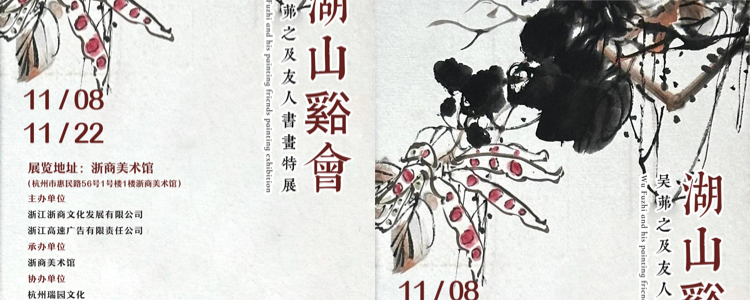 湖山谿會
茀之及友人書畫特展
Fuzhi and his painting friends painting exhibition
11/08
11/22
展览地址：浙商美术馆
（杭州市惠民路56号1号楼1楼浙商美术馆）
主办单位
浙江浙商文化发展有限公司
浙江高速广告有限责任公司
承办单位
浙商美术馆
协办单位
杭州瑞园文化
湖山谿
吴茀之及友人
Wu Fuzhi and his painting
11/08